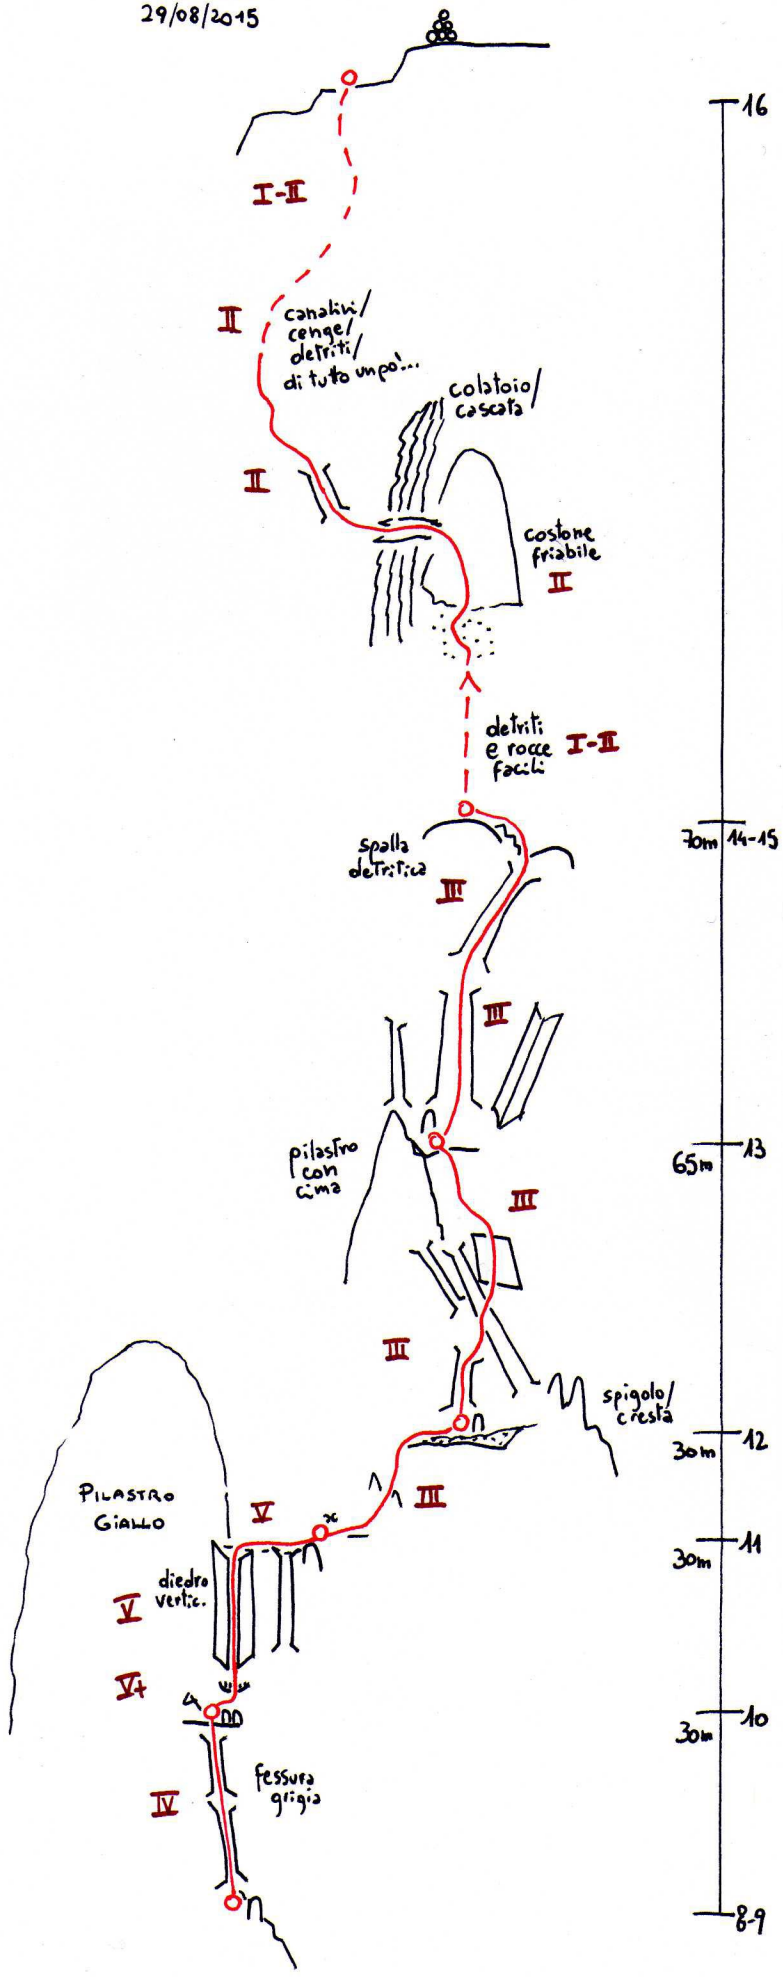 29/08/2015
16
I-II
II
canalini/
cenge/
detriti/
di tutto un pò...
colatoio/
cascata
II
costone
friabile
II
detriti
e rocce
facili
I-II
70m 14-15
spalla
detritica
III
III
13
65m
pilastro
con
cima
III
III
spigolo/
cresta
12
30m
III
PILASTRO
GIALLO
V
11
30m
diedro
vertic.
V
V+
10
30m
fessura
grigia
IV
8-9